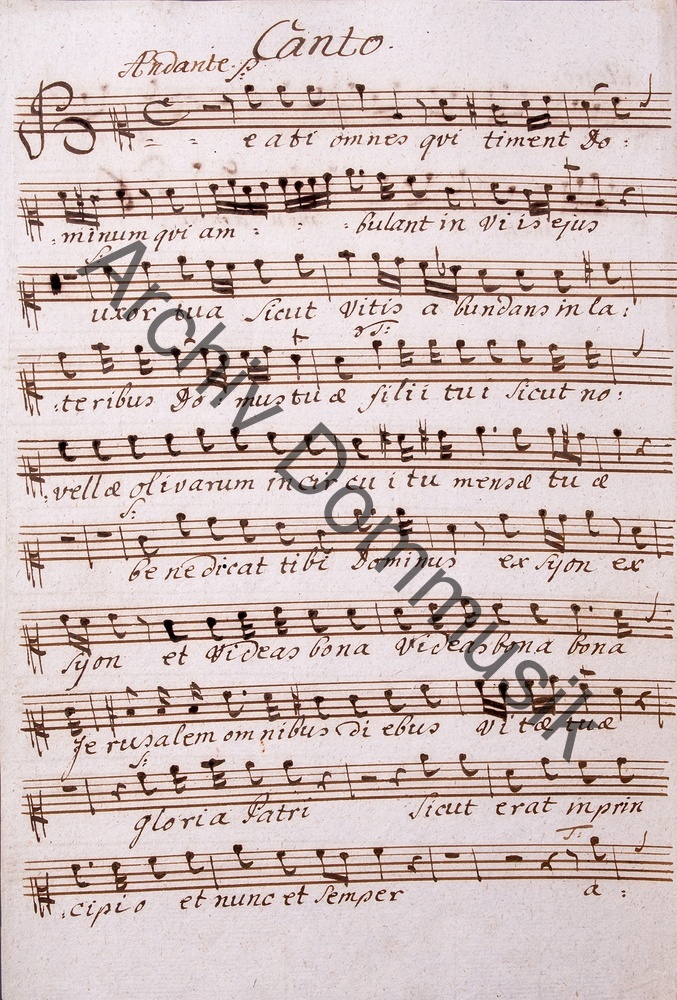 Canto.
Andante. p:
B = = eati omnes qui timent Do:
:minum qui am - - - bulant in Viis ejus
uxor tua sicut Vitis abundans in la:
:teribus Domus tuæ filii tui sicut no:
:vellæ olivarum in circuitu mensæ tuæ
benedicat tibi Dominus ex Syon ex
Syon et Videas bona Videas bona bona
Jerusalem omnibus diebus vitæ tuæ
gloria Patri sicut erat in prin
:cipio et nunc et semper a:
S:
T:
S:
S:
T:
Archiv Dommusik